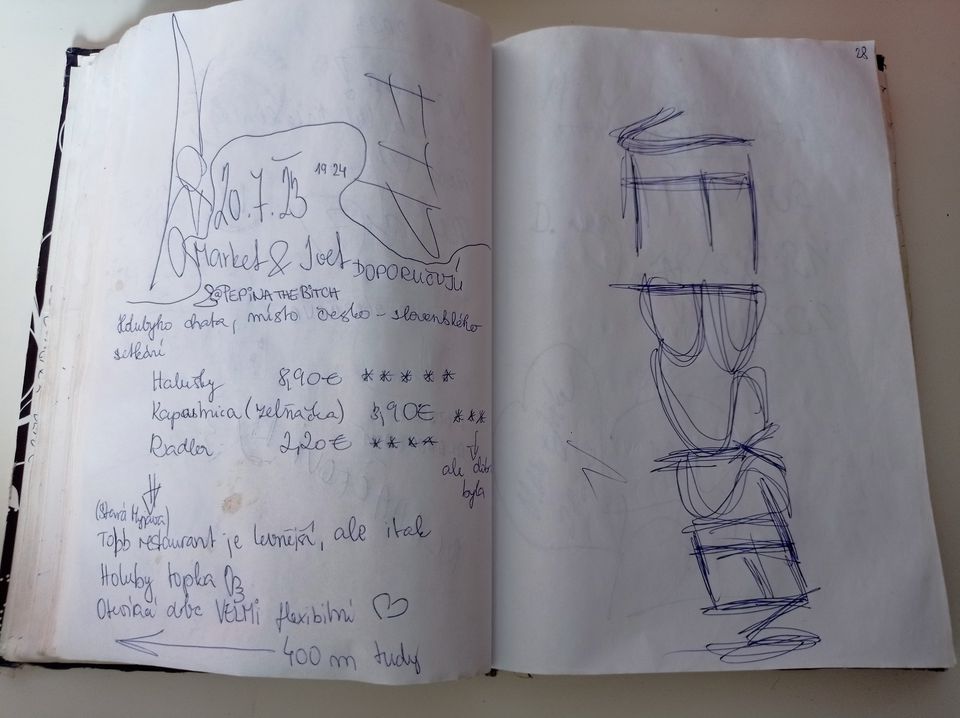 28
20.7.23 19:24
Market & Joet DOPORUČUJÍ
@PEPINATHEBITCH
Holubyho chata, místo česko-slovenského
setkání
Halušky 8,90€ * * * * *
Kapustnica (zelňačka) 3,90€ * * *
Radler 2,20€ * * * *
ale dob
byla
(Stará Myjava)
Topp restaurant je levnější, ale itak
Holuby topka
Otvírací doba VELMI flexibilní ♡
← 400 m tudy